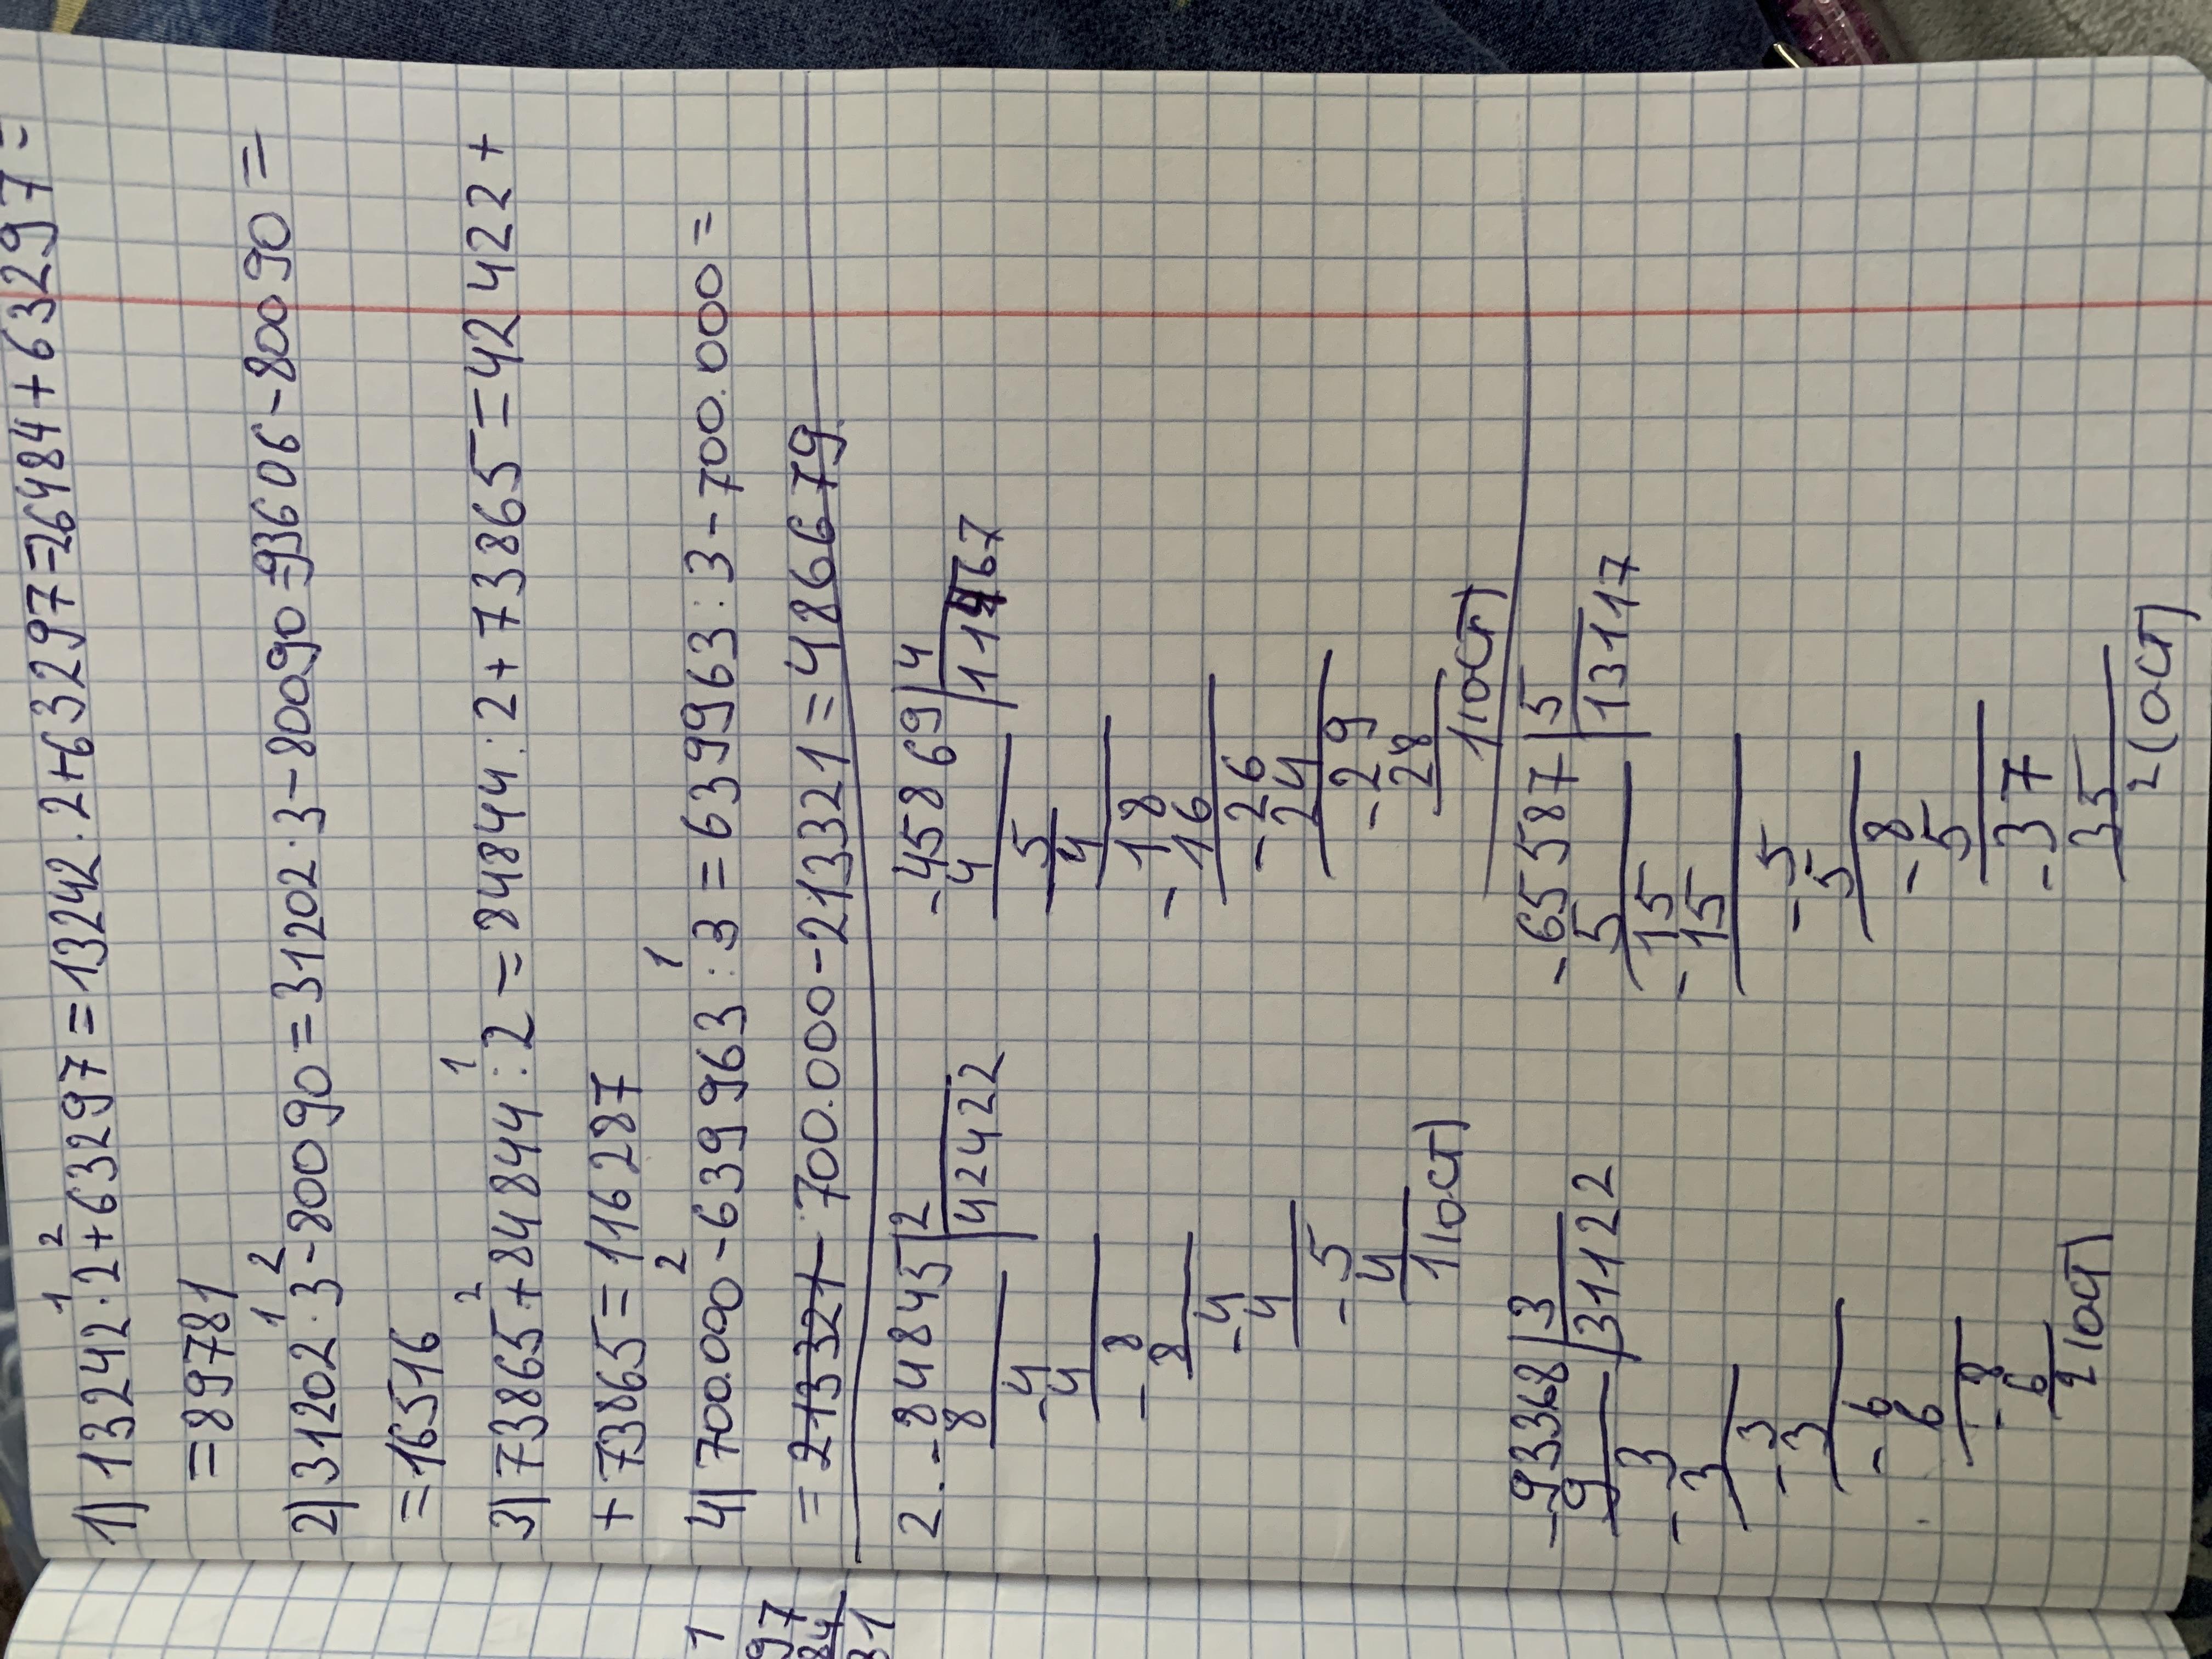 1 2
1) 13242 · 2 + 63297 = 13242 · 2 + 63297 = 26484 + 63297 =
= 89781
1 2
2) 31202 · 3 - 80090 = 31202 · 3 - 80090 = 93606 - 80090 =
= 16516
2 1
3) 73865 + 84844 : 2 = 84844 : 2 + 73865 = 42422 +
+ 73865 = 116287
2 1
4) 700.000 - 639963 : 3 = 639963 : 3 - 700.000 =
= 213321 700.000 - 213321 = 486679
2. - 84845 | 2
8 42422
- 4
4
- 8
8
- 4
4
- 5
4
1 (ост)
- 45869 | 4
4 11467
5
4
- 18
16
- 26
24
- 29
28
1 (ост)
- 93368 | 3
9 31122
- 3
3
- 3
3
- 6
6
- 8
6
2 (ост)
- 65587 | 5
5 13117
- 15
15
- 5
5
- 8
5
- 37
35
2 (ост)
1
97
84
81